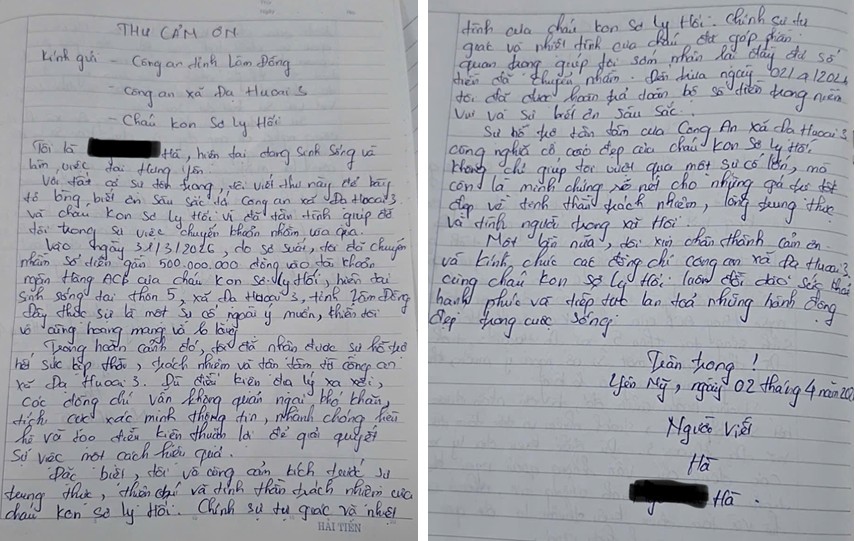 THƯ CẢM ƠN
Kính gửi - Công an tỉnh Lâm Đồng
- Công an xã Đạ Huoai 3
- Cháu Kon Sơ Ly Hối
Tôi là Hà, hiện tại đang sinh sống và
làm việc tại Hưng Yên
Với tất cả sự tôn trọng, tôi viết thư này để bày
tỏ lòng biết ơn sâu sắc tới Công an xã Đạ Huoai 3
và cháu Kon Sơ Ly Hối vì đã tận tình giúp đỡ
tôi trong sự việc chuyển khoản nhầm vừa qua.
Vào ngày 31/3/2026, do sơ suất, tôi đã chuyển
nhầm số tiền gần 500.000.000 đồng vào tài khoản
ngân hàng ACB của cháu Kon Sơ Ly Hối, hiện tại
sinh sống tại thôn 5, xã Đạ Huoai 3, tỉnh Lâm Đồng
Đây thực sự là một sự cố ngoài ý muốn, khiến tôi
vô cùng hoang mang và lo lắng
Trong hoàn cảnh đó, tôi đã nhận được sự hỗ trợ
hết sức kịp thời, trách nhiệm và tận tâm từ công an
xã Đạ Huoai 3. Dù điều kiện địa lý xa xôi,
các đồng chí vẫn không quản ngại khó khăn,
tích cực xác minh thông tin, nhanh chóng liên
hệ và tạo điều kiện thuận lợi để giải quyết
sự việc một cách hiệu quả.
Đặc biệt, tôi vô cùng cảm kích trước sự
trung thực, thiện chí và tinh thần trách nhiệm của
cháu Kon Sơ Ly Hối. Chính sự tự giác và nhiệt
HẢI TIẾN
tình của cháu Kon Sơ Ly Hối. Chính sự tự
giác và nhiệt tình của cháu đã góp phần
quan trọng giúp tôi sớm nhận lại đầy đủ số
tiền đã chuyển nhầm. Đến trưa ngày 02/4/2026
tôi đã được hoàn trả toàn bộ số tiền trong niềm
vui và sự biết ơn sâu sắc.
Sự hỗ trợ tận tâm của Công An xã Đạ Huoai 3
cùng nghĩa cử cao đẹp của cháu Kon Sơ Ly Hối
không chỉ giúp tôi vượt qua một sự cố lớn, mà
còn là minh chứng rõ nét cho những giá trị tốt
đẹp về tinh thần trách nhiệm, lòng trung thực
và tình người trong xã hội.
Một lần nữa, tôi xin chân thành cảm ơn
và kính chúc các đồng chí công an xã Đạ Huoai 3,
cùng cháu Kon Sơ Ly Hối luôn dồi dào sức khoẻ
hạnh phúc và tiếp tục lan toả những hành động
đẹp trong cuộc sống.
Trân trọng !
Yên Mỹ, ngày 02 tháng 4 năm 202
Người viết
Hà
Hà.